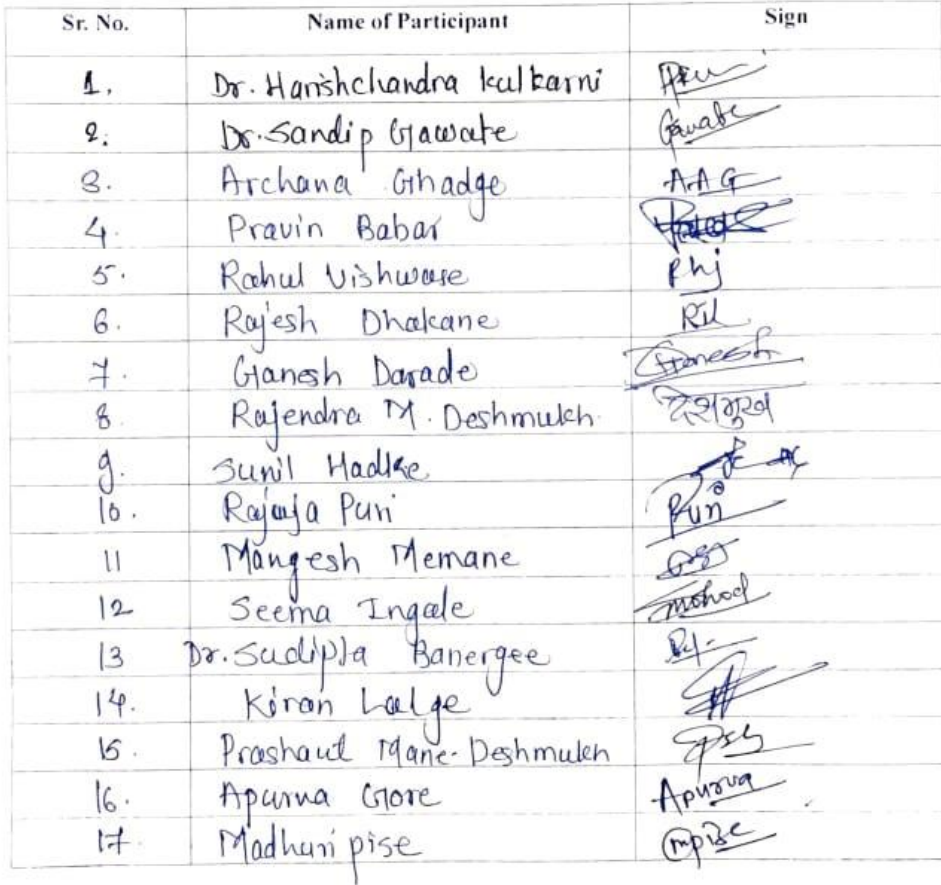 Sr. No. Name of Participant Sign
1. Dr. Harishchandra Kulkarni
2. Dr. Sandip Gawate Gawate
3. Archana Ghadge A.A G
4. Pravin Babar
5. Rahul Vishwase
6. Rajesh Dhakane
7. Ganesh Darade Ganesh
8. Rajendra M. Deshmukh देशमुख
9. Sunil Hadke
10. Puri Puri
11 Mangesh Memane
12 Seema Ingale mohod
13 Dr. Sudipta Banergee
14. Kiran Lalge
15. Prashant Mane-Deshmukh
16. Apurva Gore Apurva
17. Madhuri pise mpise